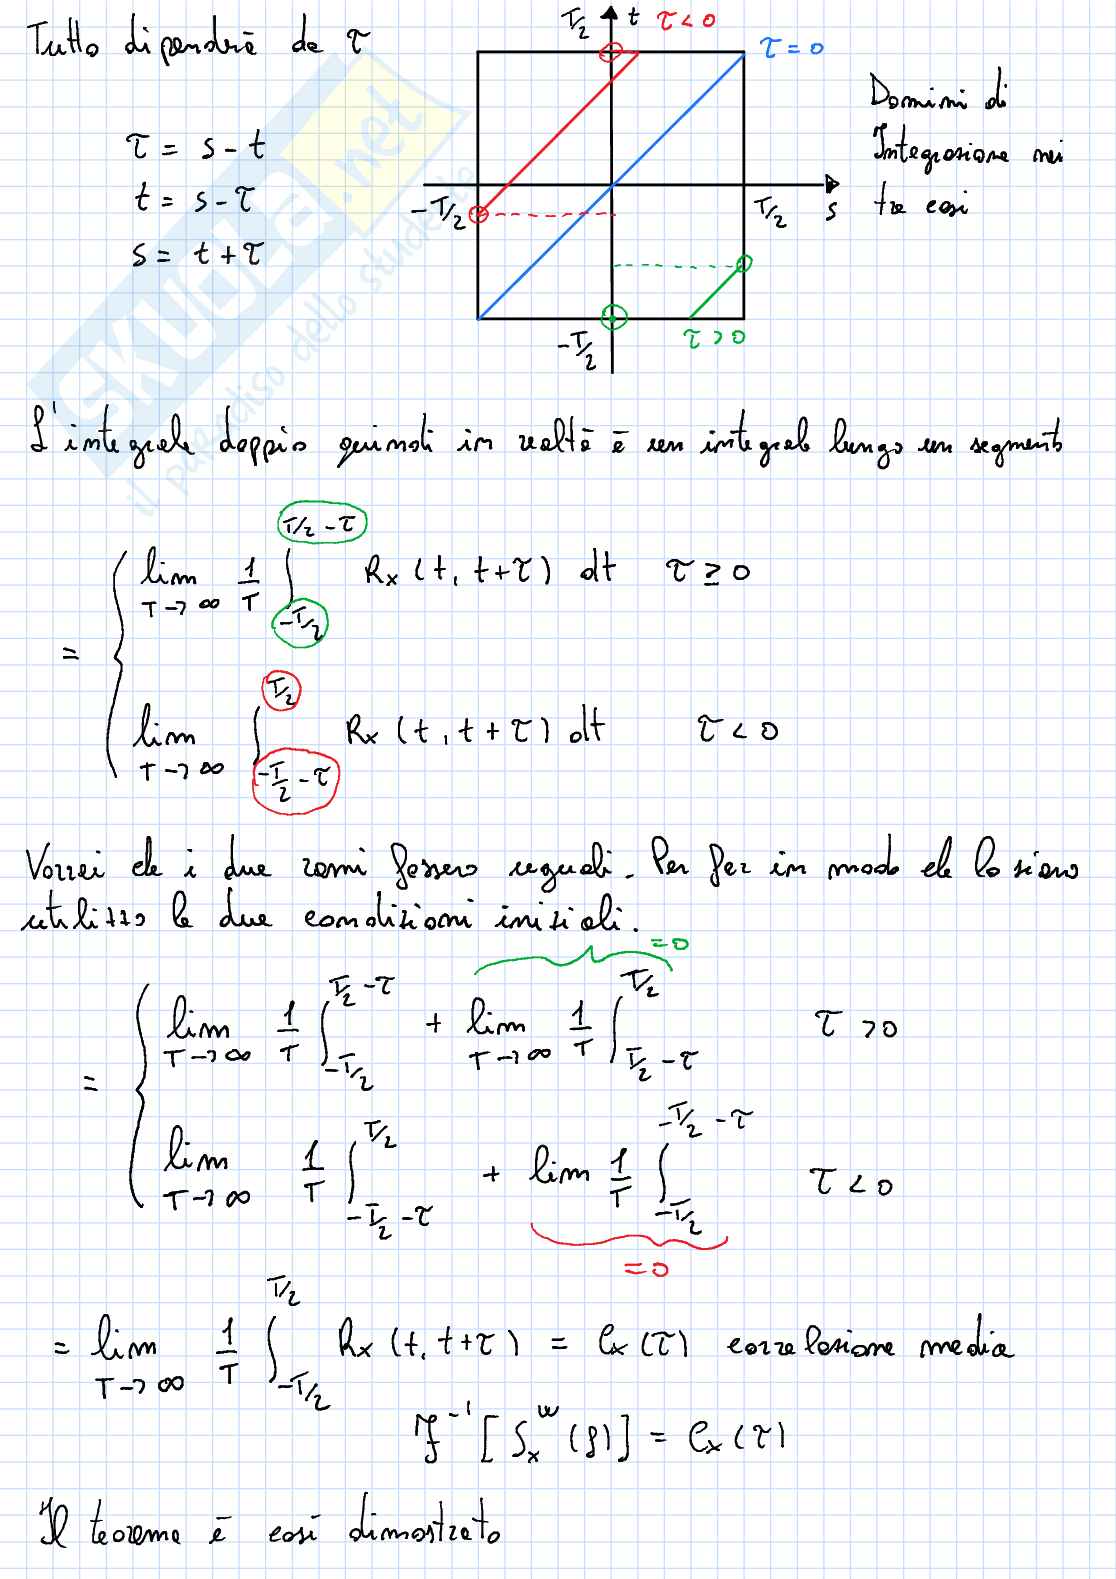 Tutto dipenderà da τ
T/2 t τ<0
τ=0
τ = s-t
t = s-τ
s = t+τ
Domini di
Integrazione nei
tre casi
-T/2 T/2 s
-T/2 τ>0
SKUOLA.net
il paradiso dello studente
L'integrale doppio quindi in realtà è un integrale lungo un segmento
= { lim T→∞ 1/T ∫_{-T/2}^{T/2-τ} Rx (t, t+τ) dt τ≥0
lim T→∞ ∫_{-T/2-τ}^{T/2} Rx (t, t+τ) dt τ<0
Vorrei che i due rami fossero uguali. Per far in modo che lo siano
utilizzo le due condizioni iniziali.
= { lim T→∞ 1/T ∫_{-T/2}^{T/2-τ} + lim T→∞ 1/T ∫_{T/2-τ}^{T/2} =0 τ>0
lim T→∞ 1/T ∫_{-T/2-τ}^{T/2} + lim 1/T ∫_{-T/2}^{-T/2-τ} =0 τ<0
= lim T→∞ 1/T ∫_{-T/2}^{T/2} Rx (t, t+τ) = Cx (τ) correlazione media
F^{-1} [ S_x^w (f)] = Cx (τ)
Il teorema è così dimostrato